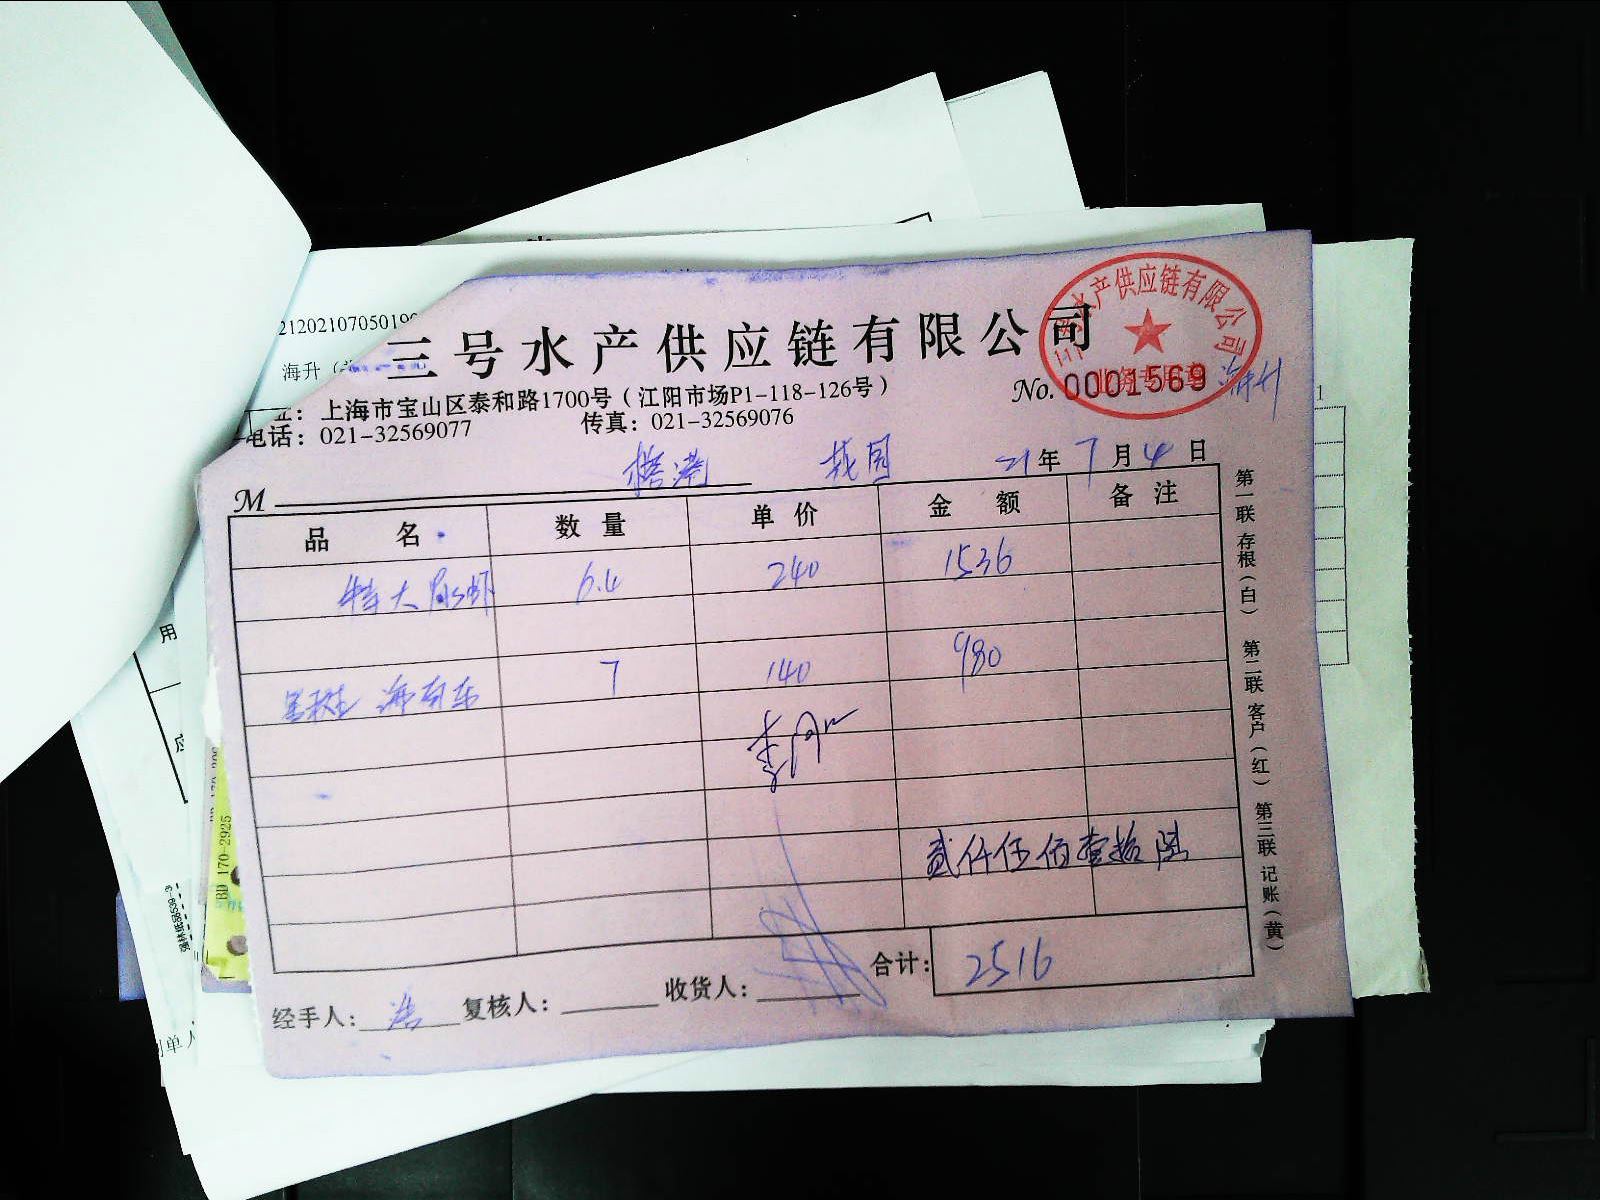 2120210705019
海升
三号水产供应链有限公司
水产供应链有限公司
业务专用章
No. 0001569
海升
址：上海市宝山区泰和路1700号（江阳市场P1-118-126号）
电话：021-32569077 传真：021-32569076
M 21年7月4日
品 名 数 量 单 价 金 额 备 注
特大 6.4 240 1536
7 140 980
贰仟伍佰壹拾陆
合计：2516
经手人：浩 复核人： 收货人：
第一联 存根（白） 第二联 客户（红） 第三联 记账（黄）
用
应
BD 170-2925
制单人
1